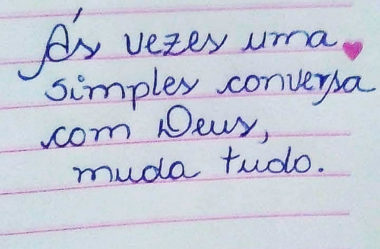 Ás vezes uma
simples conversa
com Deus,
muda tudo.